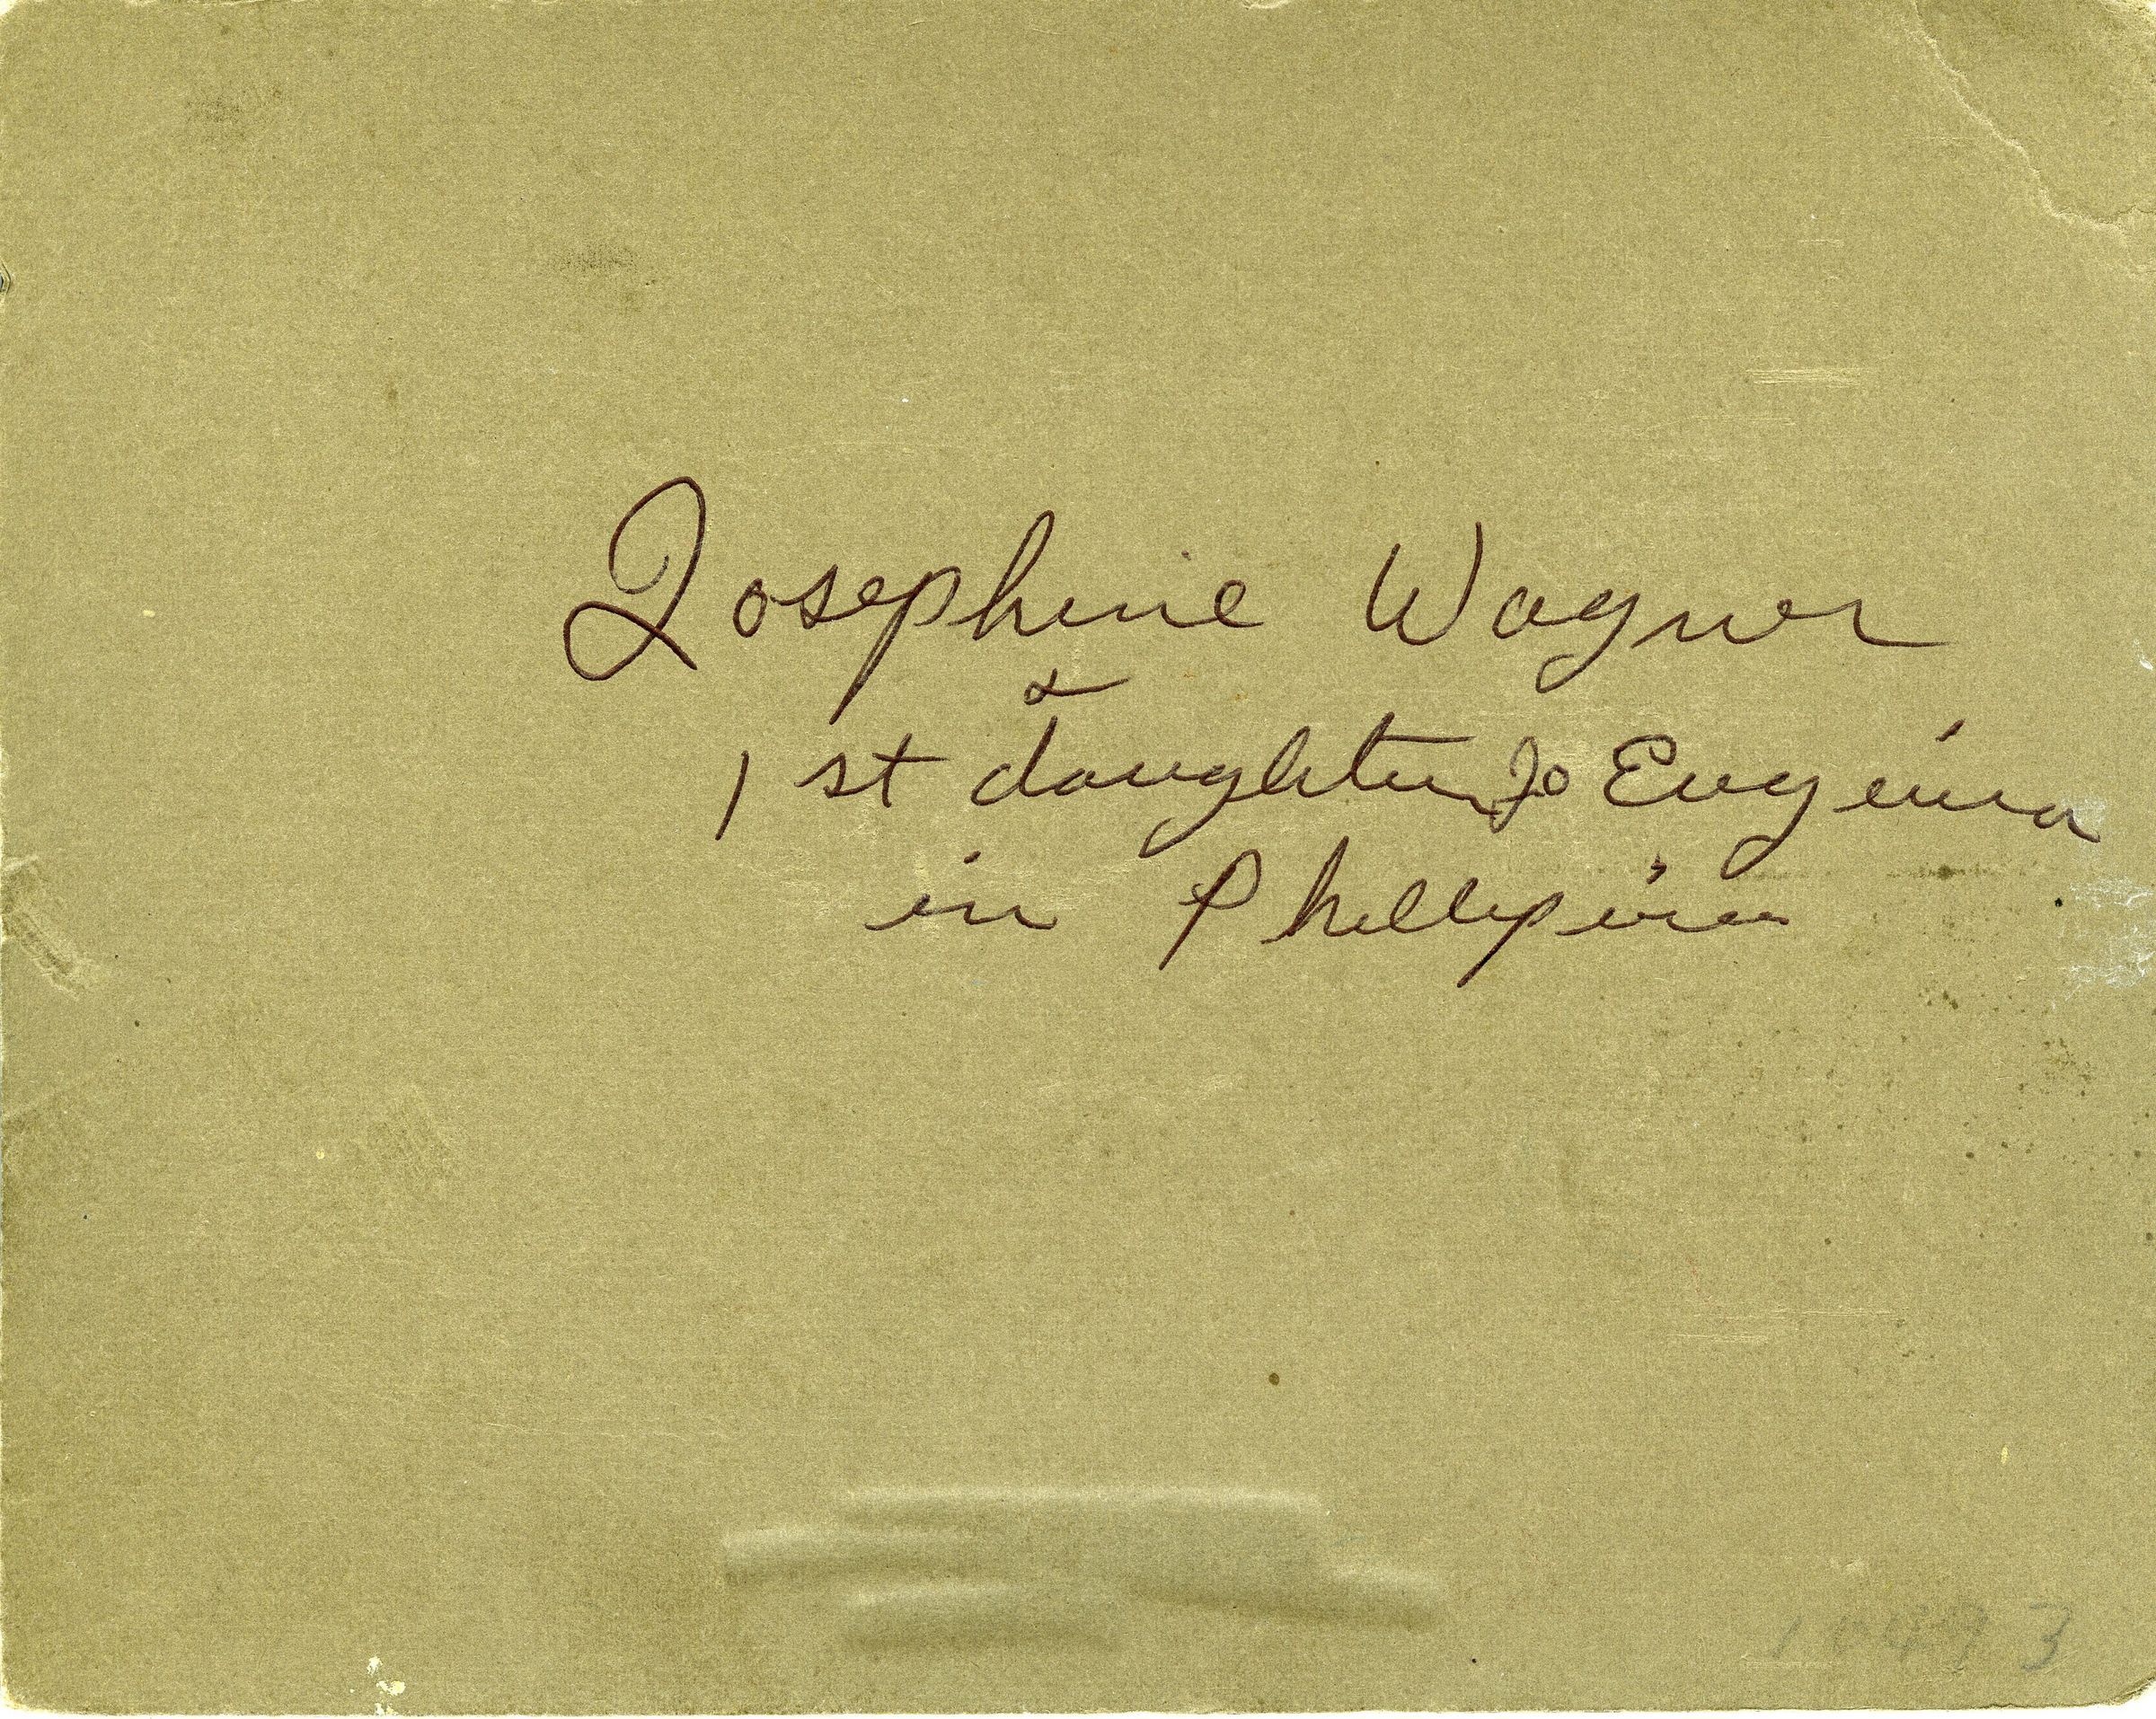 Josephine Wagner
&
1st daughter Jo Eugenia
in Phillipines